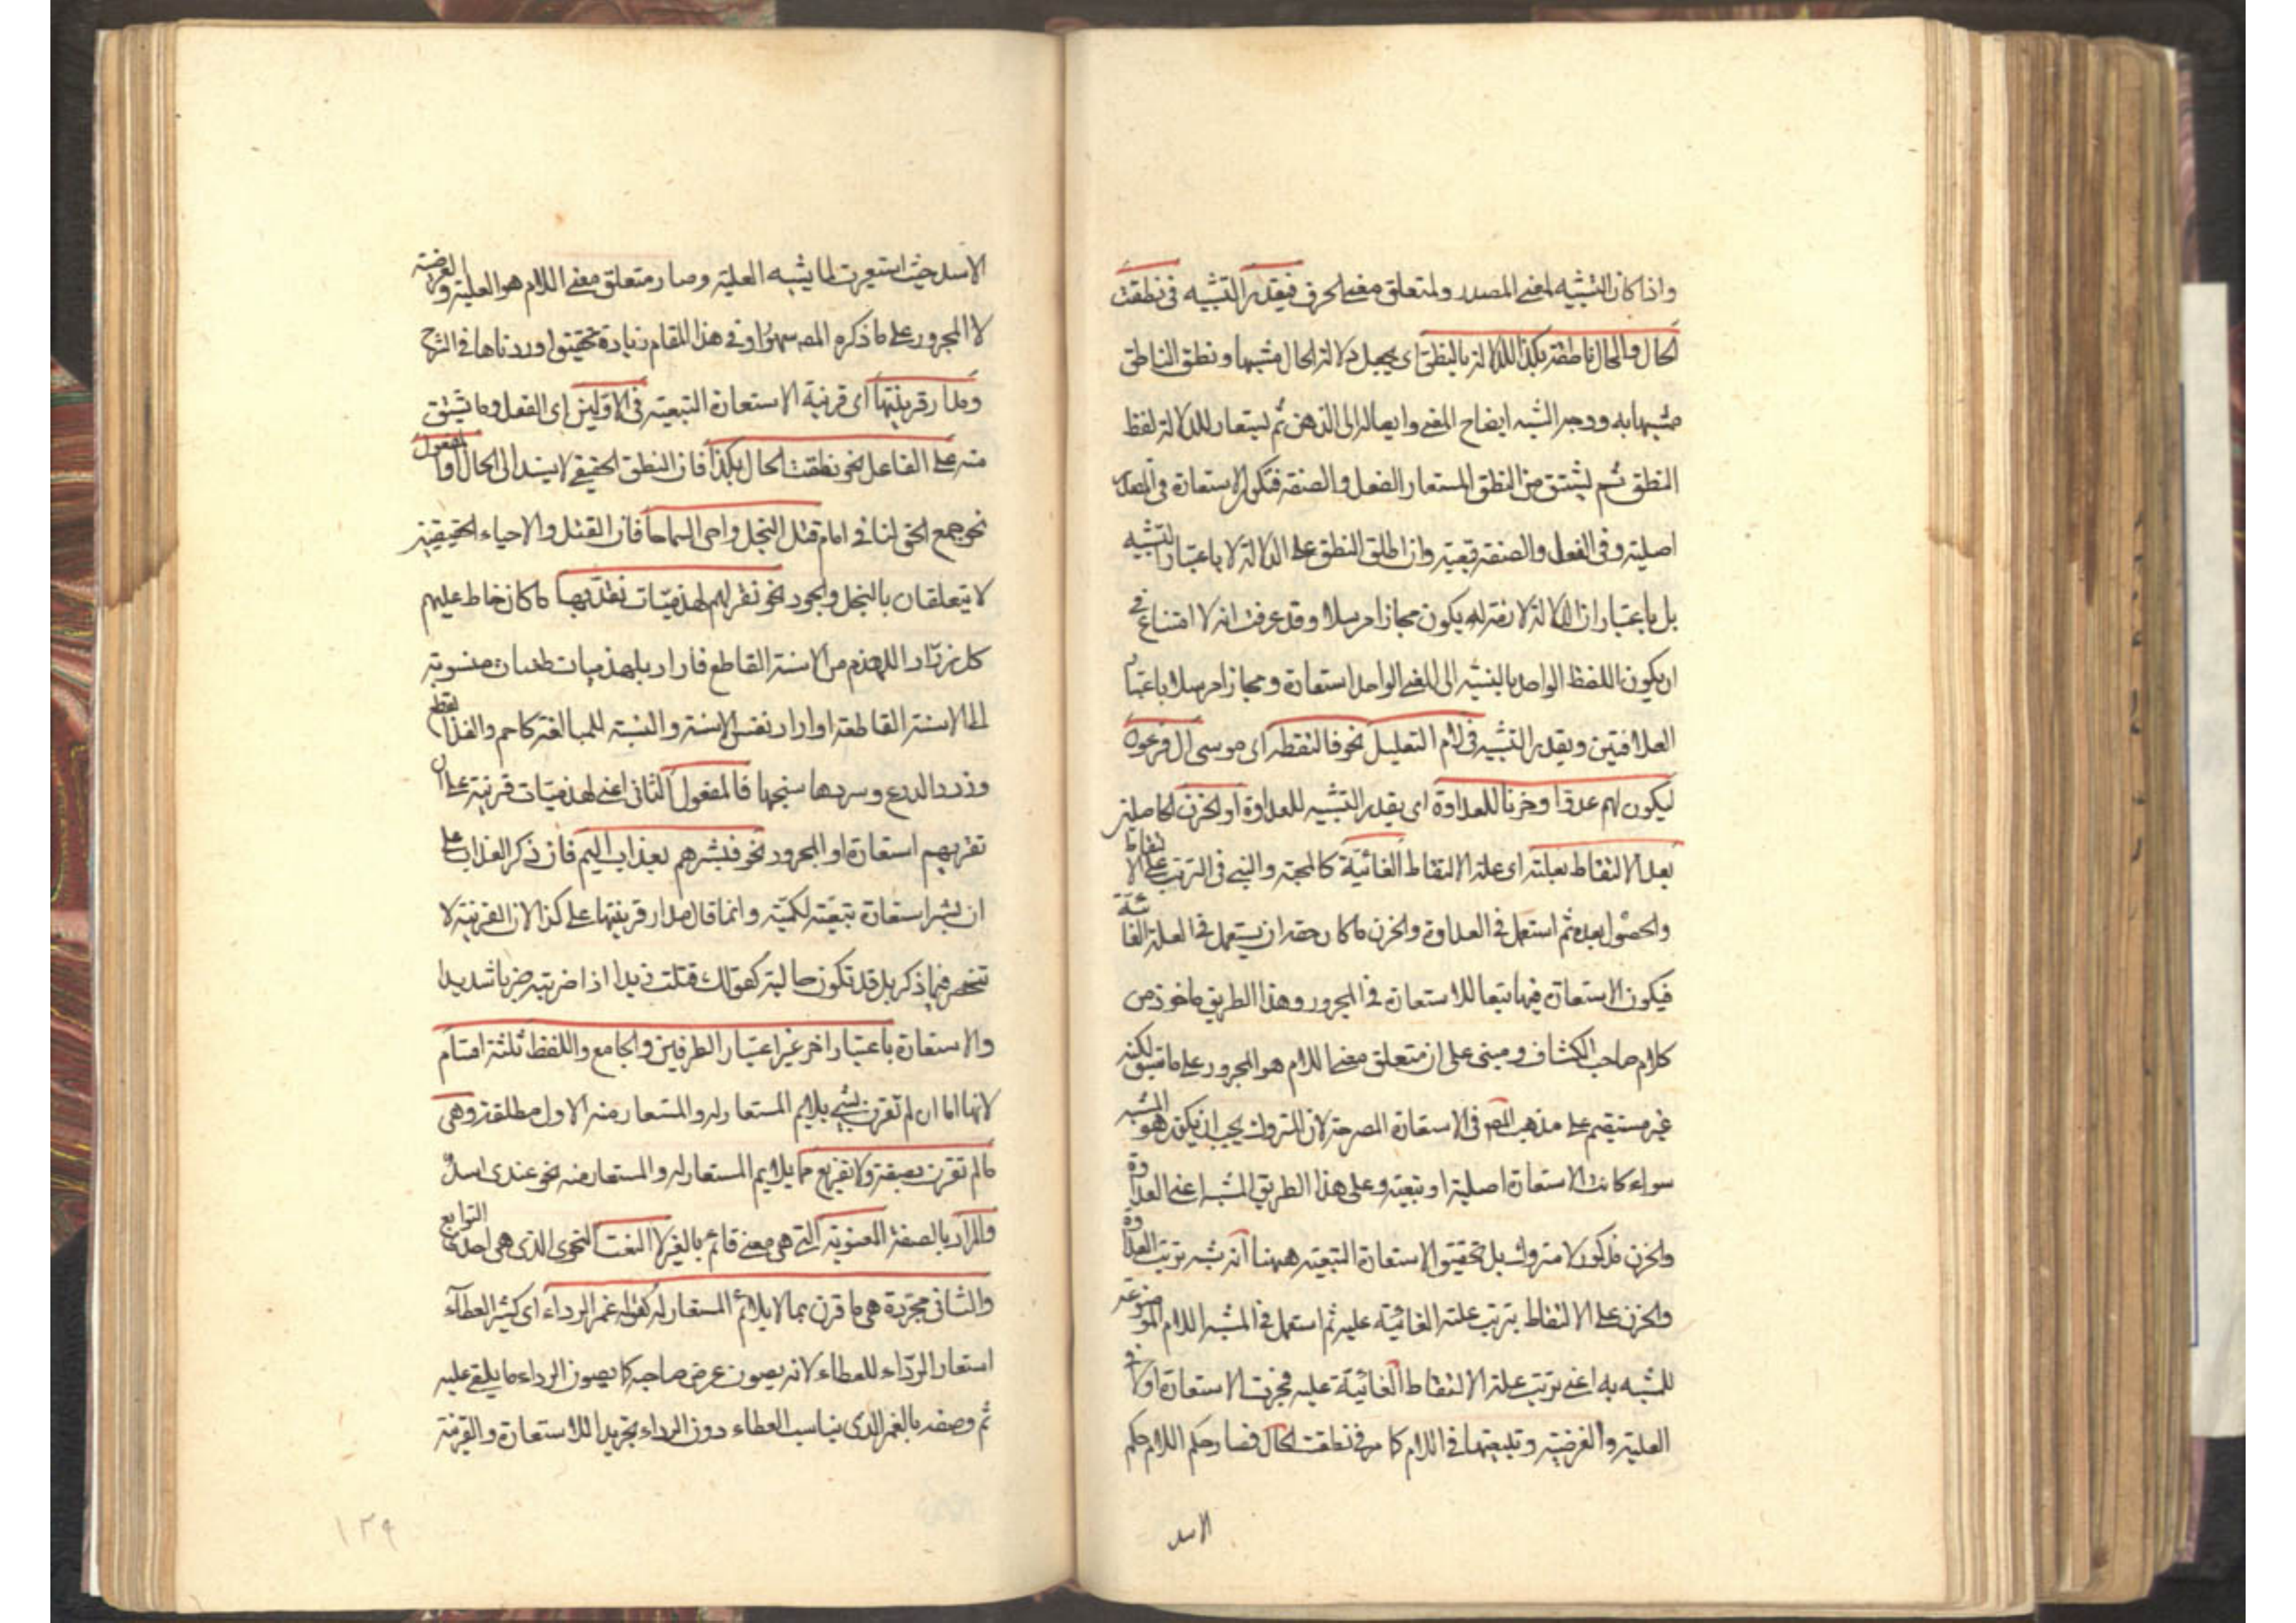 واذا كان التشبيه لمعنى المصدر ولمتعلق معنى الحرف فيقدر التشبيه فى نطقت
الحال والحال ناطقة بكذا للدلالة بالنطق اى يجعل دلالة الحال مشبها ونطق الناطق
مشبها به ووجه الشبه ايضاح المعنى وايصاله الى الذهن ثم يستعار للدلالة لفظ
النطق ثم يشتق من النطق المستعار الفعل والصفة فتكون الاستعارة فى المصدر
اصلية وفى الفعل والصفة تبعية وان اطلق النطق على الدلالة لا باعتبار التشبيه
بل باعتبار ان الدلالة لازمة له يكون مجازا مرسلا وقد عرفت انه لا امتناع فى
ان يكون اللفظ الواحد بالنسبة الى المعنى الواحد استعارة ومجازا مرسلا باعتبار
العلاقتين ويقدر التشبيه فى لام التعليل نحو فالتقطه اى موسى ال فرعون
ليكون لهم عدوا وحزنا للعداوة اى يقدر التشبيه للعداوة او الحزن الحاصلة
بعد الالتقاط بعلته اى علة الالتقاط الغائية كالمحبة والتبنى فى الترتب على الالتقاط
والحصول بعده ثم استعمل فى العداوة والحزن ما كان حقه ان يستعمل فى العلة الغائية
فيكون الاستعارة فيها تبعا للاستعارة فى المجرور وهذا الطريق ماخوذ من
كلام صاحب الكشاف ومبنى على ان متعلق معنى اللام هو المجرور على ما سبق لكنه
غير مستقيم على مذهب المص فى الاستعارة المصرحة لان المتروك يجب ان يكون هو المشبه
سواء كانت الاستعارة اصلية او تبعية وعلى هذا الطريق المشبه اعنى العداوة
والحزن مذكور لا متروك بل تحقيق الاستعارة التبعية ههنا انه شبه ترتب العداوة
والحزن على الالتقاط بترتب علته الغائية عليه ثم استعمل فى المشبه اللام الموضوعة
للمشبه به اعنى ترتب علة الالتقاط الغائية عليه فجرت الاستعارة اولا فى
العلية والغرضية وتبعيتها فى اللام كما مر فى نطقت الحال فصار حكم اللام حكم
الاسد
الاسد حيث استعيرت لما يشبه العلية وصار متعلق معنى اللام هو العلية والغرضية
لا المجرور على ما ذكره المص سهوا وفى هذا المقام زيادة تحقيق اوردناها فى الشرح
ومدار قرينتها اى قرينة الاستعارة التبعية فى الاولين اى الفعل وما يشتق
منه على الفاعل نحو نطقت الحال بكذا فان النطق الحقيقى لا يسند الى الحال والمفعول
نحو جمع الحق لنا فى امام قتل البخل واحى السماحا فان القتل والاحياء الحقيقيين
لا يتعلقان بالبخل والجود نحو نقريهم لهذميات نقد بها ما كان خاط عليهم
كل زراد اللهذم من الاسنة القاطع فاراد بلهذميات طعنات منسوبة
الى الاسنة القاطعة او اراد نفس الاسنة والنسبة للمبالغة كاحمرى والقد القطع
وزرد الدرع وسردها نسجها فالمفعول الثانى اعنى لهذميات قرينة على ان
نقريهم استعارة او المجرور نحو فبشرهم بعذاب اليم فان ذكر العذاب على
ان بشر استعارة تبعية تهكمية وانما قال مدار قرينتها على كذا لان القرينة لا
تنحصر فيما ذكر بل قد تكون حالية كقولك قتلت زيدا اذا ضربته ضربا شديدا
والاستعارة باعتبار اخر غير اعتبار الطرفين والجامع واللفظ ثلثة اقسام
لانها اما ان لم تقرن بشئ يلايم المستعار له والمستعار منه الاول مطلقة وهى
ما لم تقرن بصفة ولا تفريع مما يلايم المستعار له والمستعار منه نحو عندى اسد
والمراد بالصفة المعنوية التى هى معنى قائم بالغير لا النعت النحوى الذى هى احد التوابع
والثانى مجردة هى ما قرن بما لايلائم المستعار له كقوله غمر الرداء اى كثير العطاء
استعار الرداء للعطاء لانه يصون عرض صاحبه كما يصون الرداء ما يلقى عليه
ثم وصفه بالغمر الذى يناسب العطاء دون الرداء تجريدا للاستعارة والقرينة
١٢٩